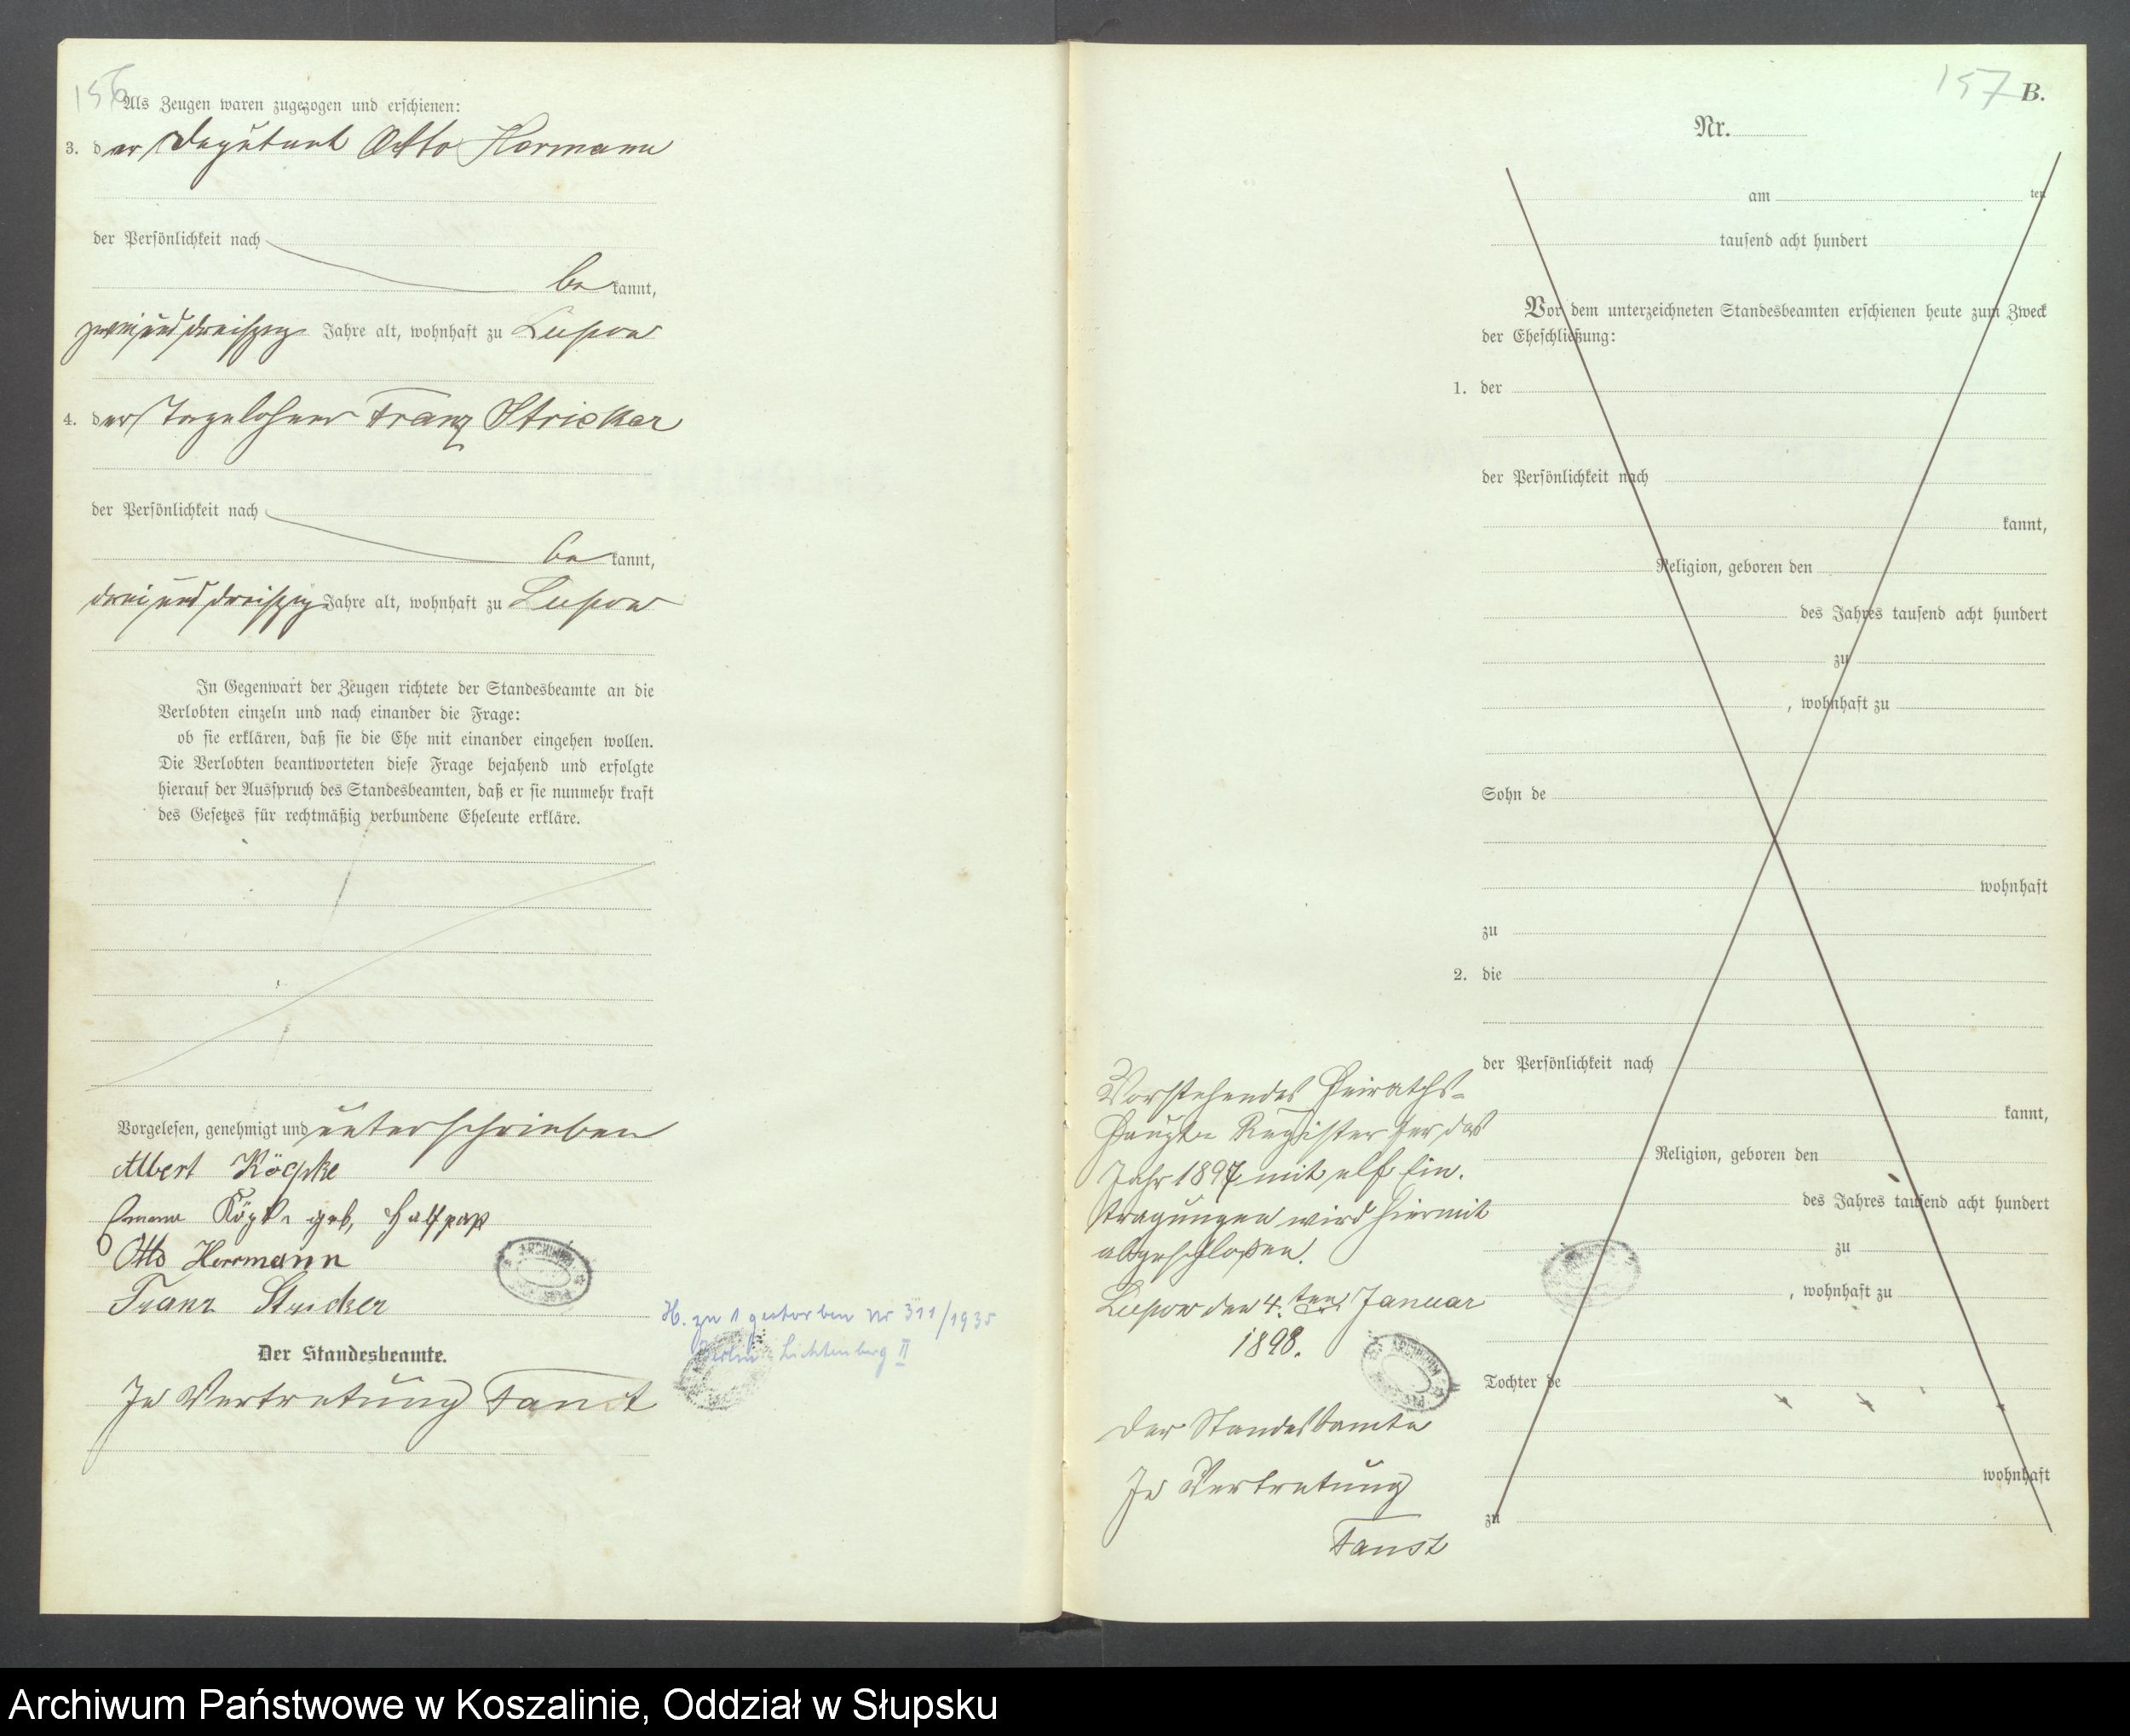 156
Als Zeugen waren zugezogen und erschienen:
3. der Deputant Otto Hermann
der Persönlichkeit nach
be kannt,
zweiunddreißig Jahre alt, wohnhaft zu Lupow
4. der Tagelöhner Franz Stricker
der Persönlichkeit nach
be kannt,
dreiunddreißig Jahre alt, wohnhaft zu Lupow
In Gegenwart der Zeugen richtete der Standesbeamte an die
Verlobten einzeln und nach einander die Frage:
ob sie erklären, daß sie die Ehe mit einander eingehen wollen.
Die Verlobten beantworteten diese Frage bejahend und erfolgte
hierauf der Ausspruch des Standesbeamten, daß er sie nunmehr kraft
des Gesetzes für rechtmäßig verbundene Eheleute erkläre.
Vorgelesen, genehmigt und unterschrieben
Albert Köpke
Köpke geb. Halfpap
Otto Herrmann
Franz Stricker
Der Standesbeamte.
In Vertretung Faust
H. zu 1 gestorben Nr 311/1935
Berlin Lichtenberg II
157 B.
Nr.
am ten
tausend acht hundert
Vor dem unterzeichneten Standesbeamten erschienen heute zum Zweck
der Eheschließung:
1. der
der Persönlichkeit nach
kannt,
Religion, geboren den
des Jahres tausend acht hundert
zu
, wohnhaft zu
Sohn de
wohnhaft
zu
2. die
der Persönlichkeit nach
kannt,
Religion, geboren den
des Jahres tausend acht hundert
zu
, wohnhaft zu
Tochter de
wohnhaft
zu
Vorstehendes Heiraths-
Haupt Register für das
Jahr 1897 mit elf Ein-
tragungen wird hiermit
abgeschlossen.
Lupow den 4. ten Januar
1898.
Der Standesbeamte
In Vertretung
Faust
Archiwum Państwowe w Koszalinie, Oddział w Słupsku